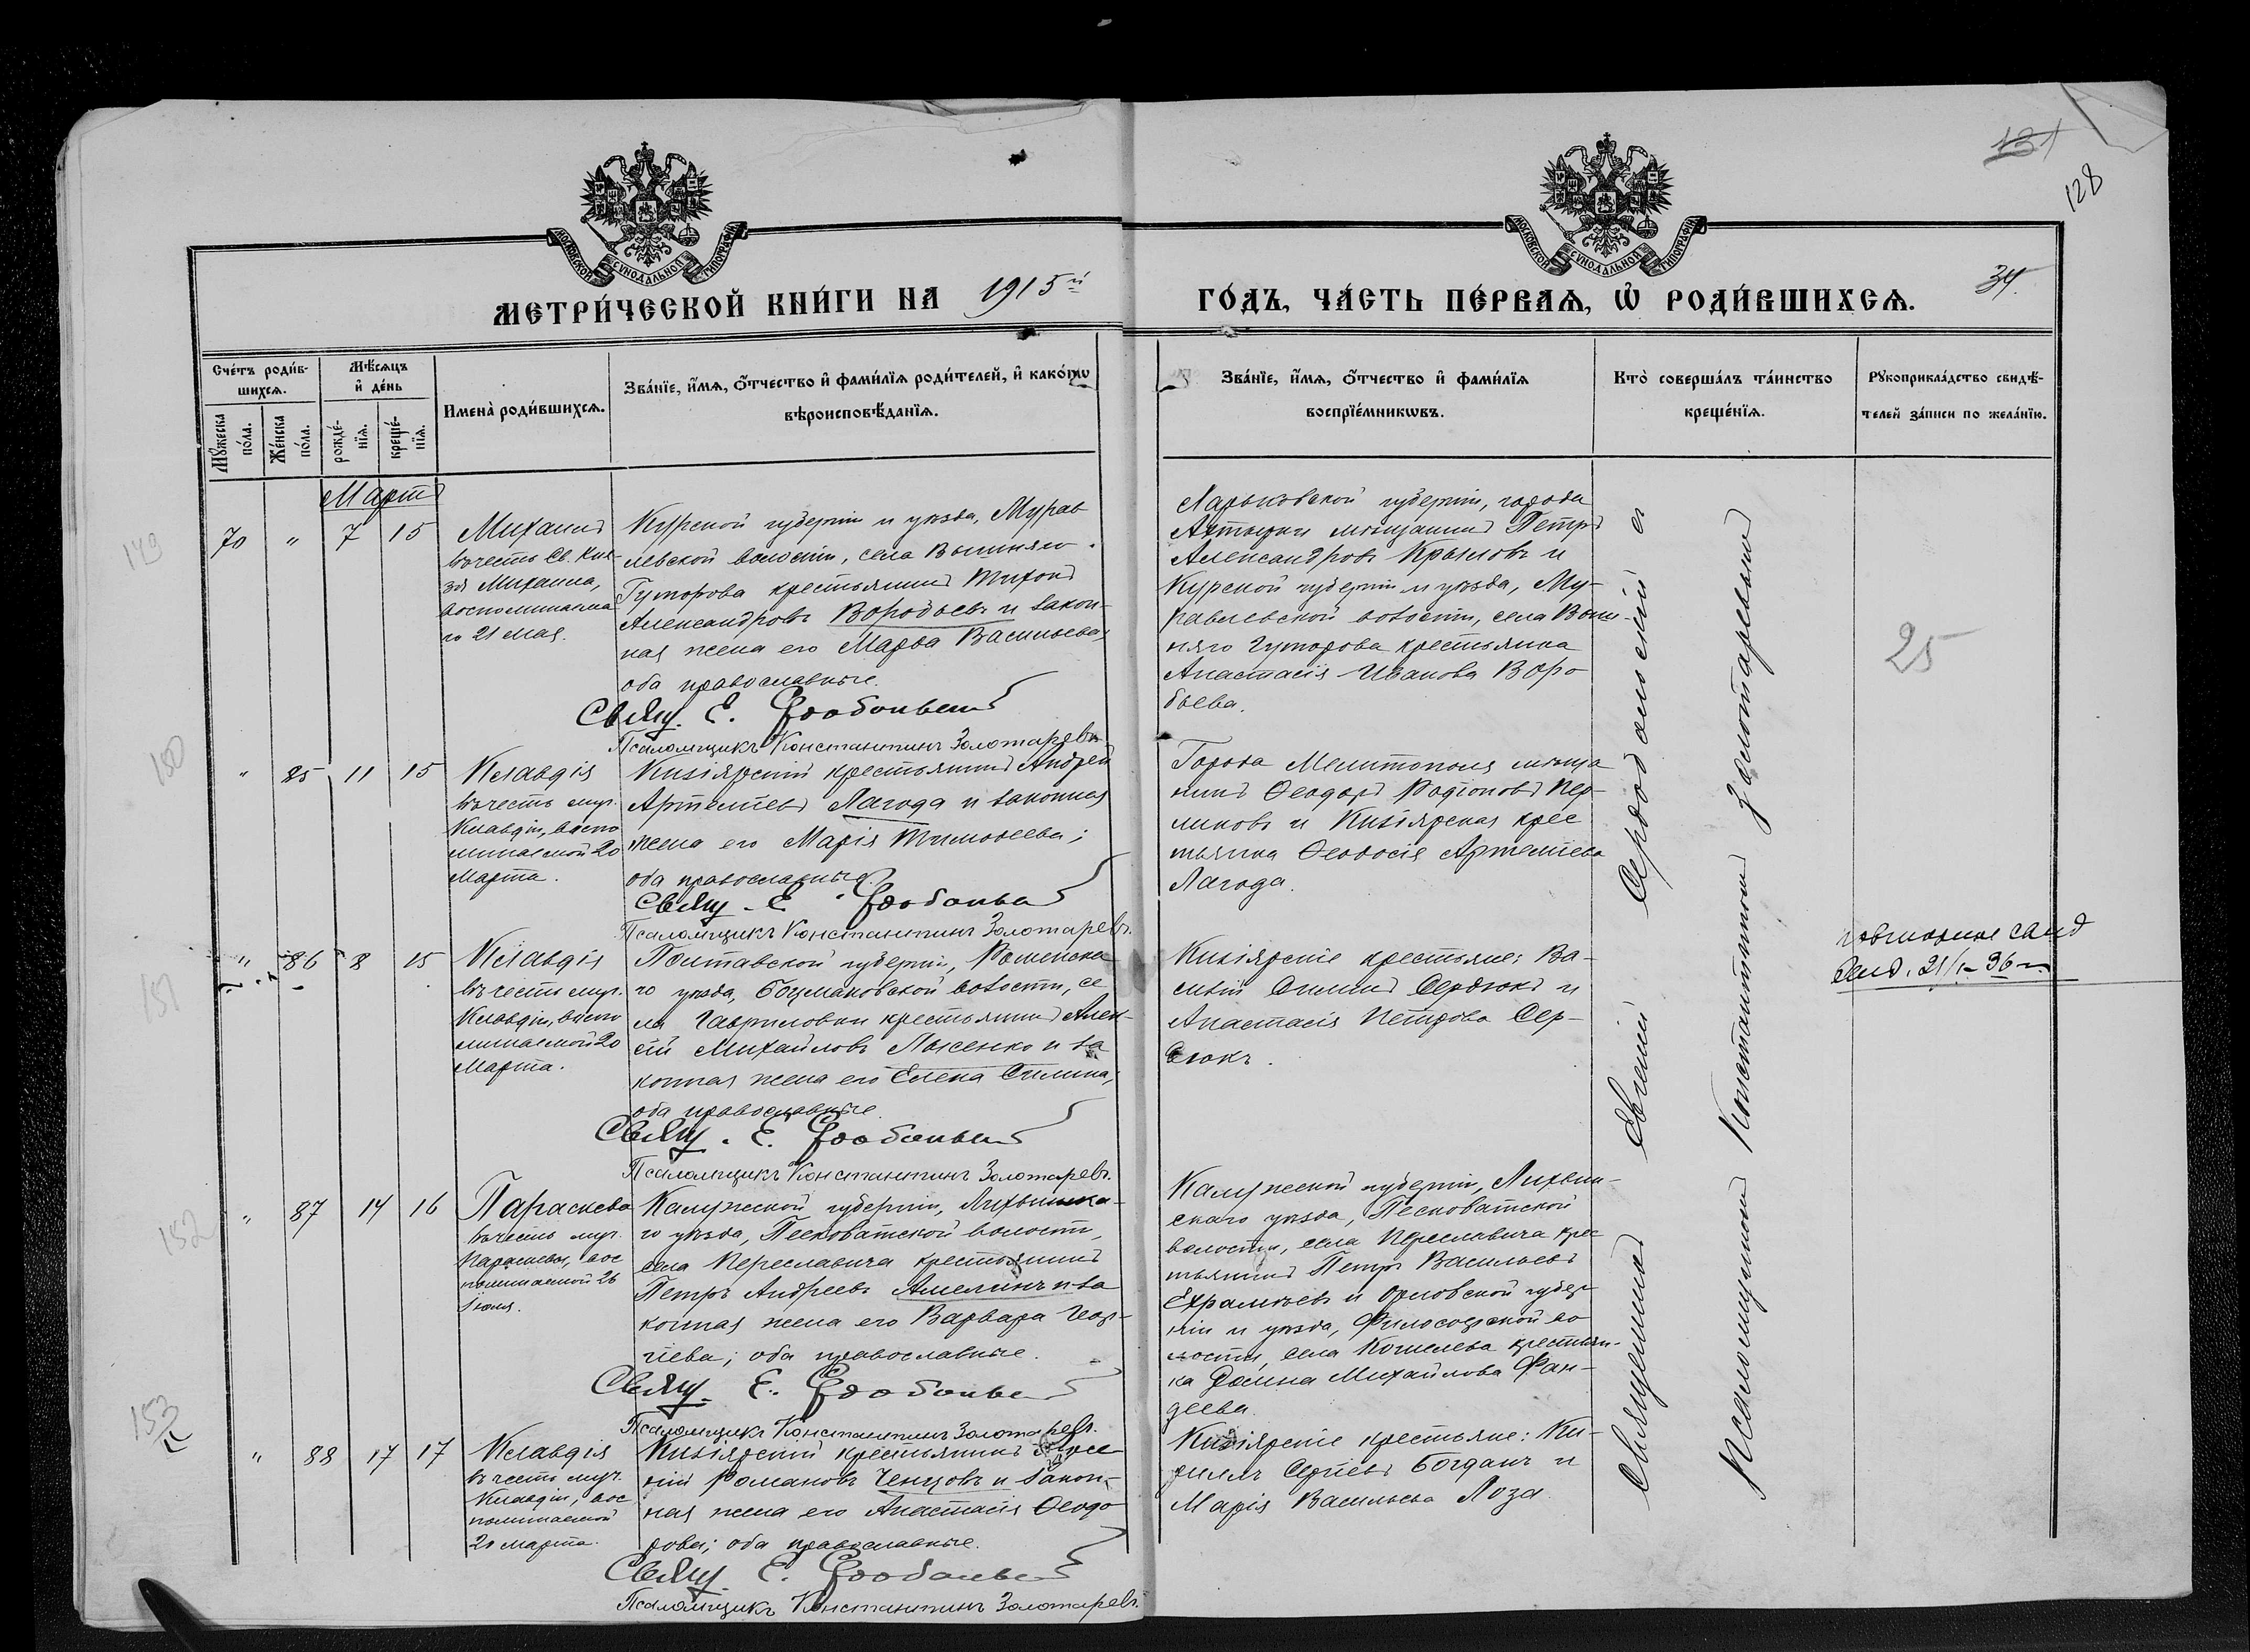 131
128
34
МОСКОВСКОЙ СУНОДАЛЬНОЙ ТИПОГРАФІИ
МОСКОВСКОЙ СУНОДАЛЬНОЙ ТИПОГРАФІИ
МЕТРИ́ЧЕСКОЙ КНИ́ГИ НА 1915й
ГО́ДЪ, ЧА́СТЬ ПЕ́РВАѦ, Ѡ҆ РОДИ́ВШИХСѦ.
Сче́тъ роди́вшихсѧ.
Мѹ́жеска по́ла.
Же́нска по́ла.
Мѣ́сѧцъ и҆ де́нь
рожде́нїѧ.
креще́нїѧ.
Имена̀ роди́вшихсѧ.
Зва́нїе, и҆́мѧ, ѻ҆́тчество и҆ фами́лїѧ роди́телей, и҆ како́гѡ
вѣроисповѣ́данїѧ.
Зва́нїе, и҆́мѧ, ѻ҆́тчество и҆ фами́лїѧ
воспрїе́мникѡвъ.
Кто̀ соверша́лъ та́инство
креще́нїѧ.
Рѹкоприкла́дство свидѣ́-
телей за́писи по жела́нїю.
Мартъ
149
70 " 7 15
Михаилъ
въ честь Св. Кня-
зя Михаила,
воспоминаема
го 21 Мая.
Курской губерніи и уѣзда, Мурав
левской волости, села Вышняго
Гуторова крестьянинъ Тихонъ
Александровъ Воробьевъ и закон-
ная жена его Марѳа Васильева,
оба православные.
Свящ. Е.
Псаломщикъ Константинъ Золотаревъ.
Харьковской губерніи, города
Ахтырки мѣщанинъ Петръ
Александровъ Крыловъ и
Курской губерніи и уѣзда, Му-
равлевской волости, села Выш-
няго Гуторова крестьянка
Анастасія Иванова Воро
бьева.
25
150
" 85 11 15
Клавдія
въ честь муч.
Клавдіи, воспо
минаемой 20
Марта.
Кизіярскій крестьянинъ Андрей
Артеміевъ Лагода и законная
жена его Марія Тимоѳеева;
оба православные.
Свящ. Е.
Псаломщикъ Константинъ Золотаревъ.
Города Мелитополя мѣща
нинъ Ѳеодоръ Родіоновъ Пер-
ликовъ и Кизіярская крес
тьянка Ѳеодосія Артеміева
Лагода.
151
" 86 8 15
Клавдія
въ честь муч.
Клавдіи, воспо
минаемой 20
Марта.
Полтавской губерніи, Роменска
го уѣзда, Боцмановской волости, се
ла Гавриловки крестьянинъ Алек-
сѣй Михайловъ Лысенко и за
конная жена его Елена Силина,
оба православные.
Свящ. Е.
Псаломщикъ Константинъ Золотаревъ.
Кизіярскіе крестьяне: Ва-
силій Силинъ Сердюкъ и
Анастасія Петрова Сер-
дюкъ.
152
" 87 14 16
Параскева
въ честь муч.
Параскевы, вос
поминаемой 26
Іюля.
Калужской губерніи, Лихвинска-
го уѣзда, Песковатской волости,
села Переславича крестьянинъ
Петръ Андреевъ Амелинъ и за
конная жена его Варвара Геор-
гіева; оба православные.
Свящ. Е.
Псаломщикъ Константинъ Золотаревъ.
Калужской губерніи, Лихвин-
скаго уѣзда, Песковатской
волости, села Переславича крес
тьянинъ Петръ Васильевъ
и Орловской губер
ніи и уѣзда, Философской во
лости, села Кошелева крестьян-
ка Михайлова Фан-
деева.
153
" 88 17 17
Клавдія
въ честь муч.
Клавдіи, вос
поминаемой
20 марта.
Кизіярскій крестьянинъ
Романовъ Ченцовъ и закон-
ная жена его Анастасія Ѳеодо
рова; оба православные.
Свящ. Е.
Псаломщикъ Константинъ Золотаревъ.
Кизіярскіе крестьяне: Ки-
риллъ Сергіевъ Богданъ и
Марія Васильева Лоза.
Священникъ Евгеній
Псаломщикомъ Константиномъ Золотаревымъ